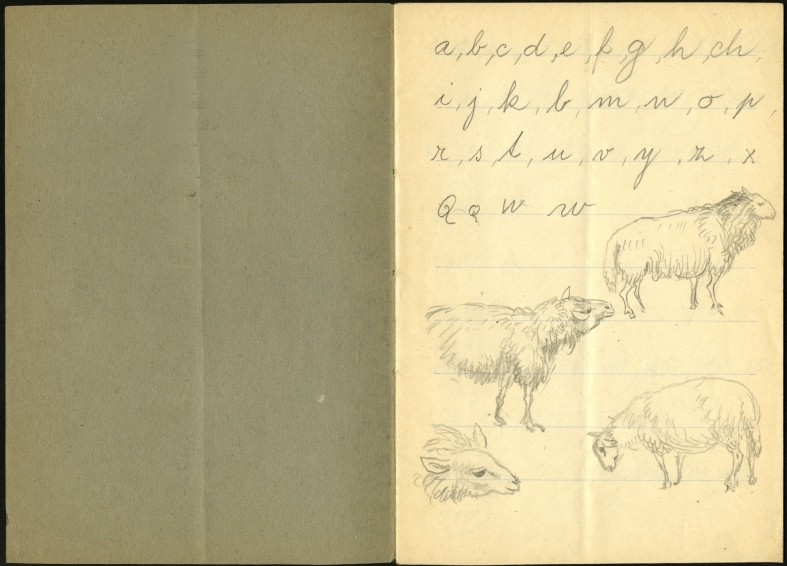 a, b, c, d, e, f, g, h, ch,
i, j, k, l, m, n, o, p,
r, s, t, u, v, y, z, x
Q q W w